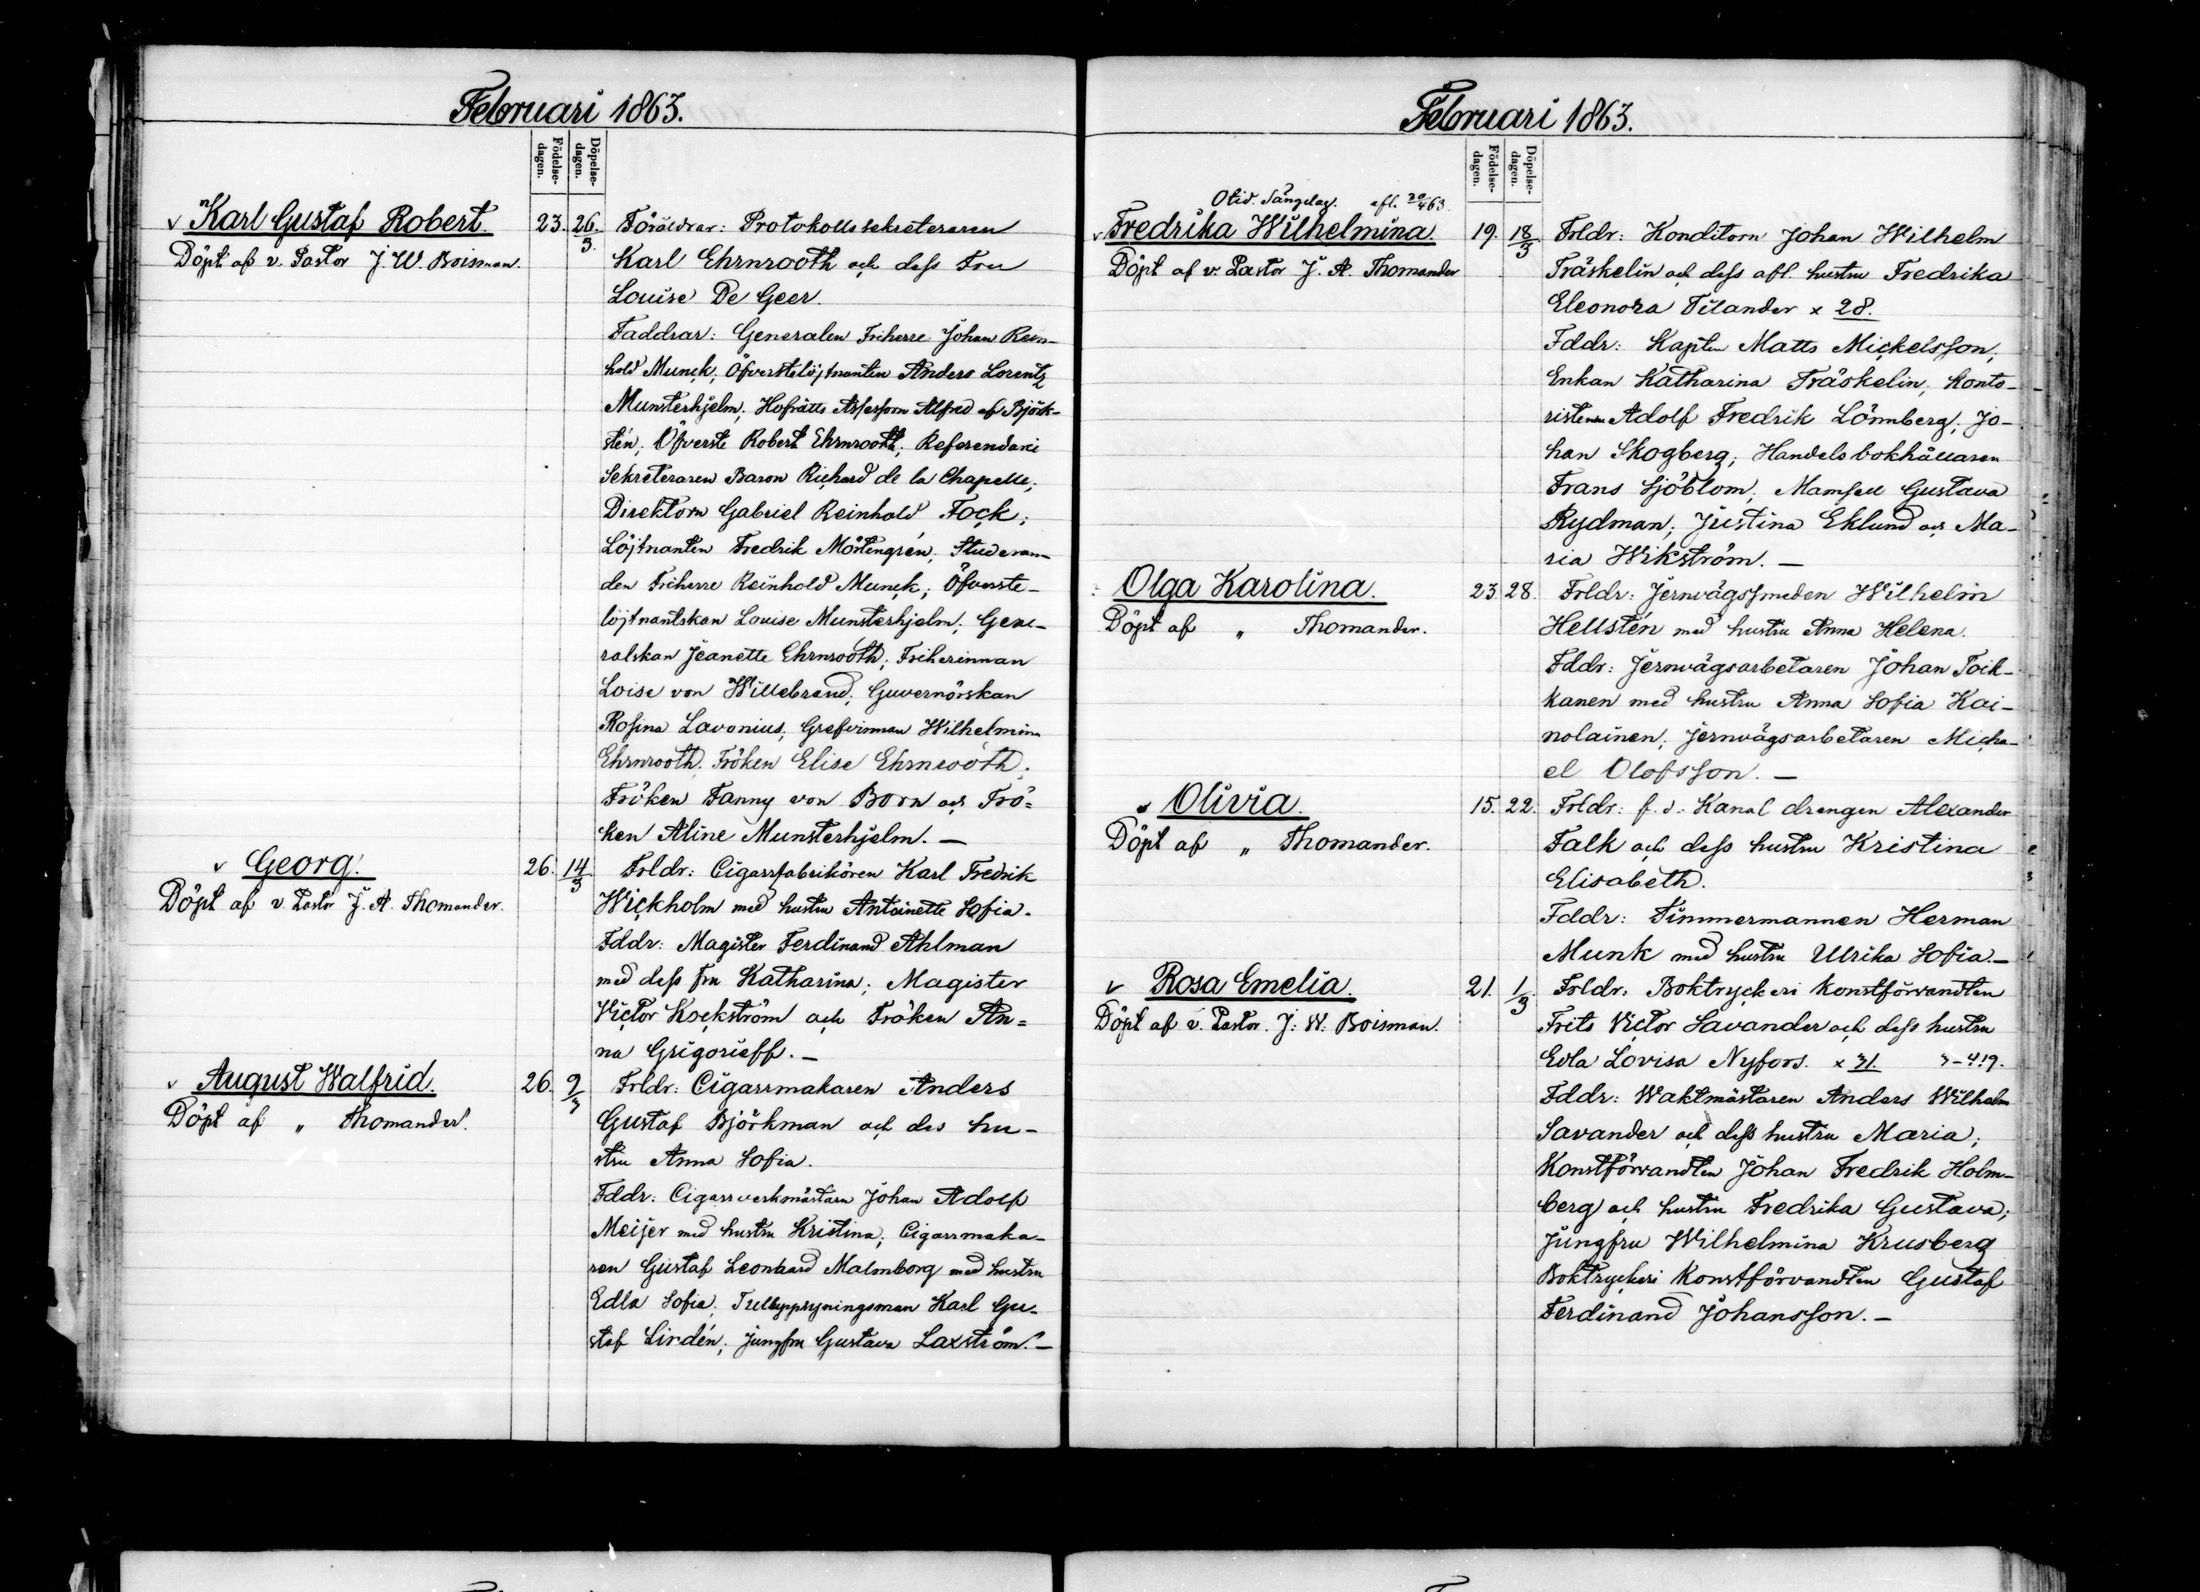 Februari 1863.
Födelse-
dagen.
Döpelse-
dagen.
v Karl Gustaf Robert. 23. 26/3. Föräldrar: Protokollssekreteraren
Döpt af v. Pastor J. W. Boisman. Karl Ehrnrooth och dess Fru
Louise De Geer.
Faddrar: Generalen Friherre Johan Rein-
hold Munck; Öfverstelöjtnanten Anders Lorentz
Munsterhjelm; Hofrätts Assessorn Alfred af Björk-
stén; Öfverste Robert Ehrnrooth; Referendarie
Sekreteraren Baron Richard de la Chapelle;
Direktorn Gabriel Reinhold Fock;
Löjtnanten Fredrik Mörtengrén; Studeran-
den Friherre Reinhold Munck; Öfverste-
löjtnantskan Louise Munsterhjelm; Gene-
ralskan Jeanette Ehrnrooth; Friherinnan
Loise von Willebrand; Guvernörskan
Rosina Lavonius; Grefvinnan Wilhelmina
Ehrnrooth; Fröken Elise Ehrnrooth;
Fröken Fanny von Born och Frö-
ken Aline Munsterhjelm. —
v Georg. 26. 14/3 Frldr: Cigarrfabrikören Karl Fredrik
Döpt af v. Pastor J. A. Thomander. Wickholm med hustru Antoinette Sofia.
Fddr: Magister Ferdinand Ahlman
med dess fru Katharina; Magister
Victor Kockström och Fröken An-
na Grigorieff. —
v August Walfrid. 26. 9/3 Frldr: Cigarrmakaren Anders
Döpt af „ Thomander. Gustaf Björkman och des hu-
stru Anna Sofia.
Fddr: Cigarrverkmästarn Johan Adolf
Meijer med hustru Kristina; Cigarrmaka-
ren Gustaf Leonhard Malmborg med hustru
Edla Sofia; Karl Gu-
staf Lindén; Jungfru Gustava Laxström. —
Februari 1863.
Födelse-
dagen.
Döpelse-
dagen.
Otid. Sängelag. afl. 20/4 63.
v Fredrika Wilhelmina. 19. 18/3 Frldr: Konditorn Johan Wilhelm
Döpt af v. Pastor J. A. Thomander Träskelin och dess afl. hustru Fredrika
Eleonora Tilander x 28.
Fddr: Kapten Matts Mickelsson;
Enkan Katharina Träskelin; Konto-
risten Adolf Fredrik Lönnberg; Jo-
han Skogberg; Handelsbokhållaren
Frans Sjöblom; Mamsell Gustava
Rydman; Justina Eklund och Ma-
ria Wikström. —
Olga Karolina. 23. 28. Frldr: Jernvägssmeden Wilhelm
Döpt af „ Thomander. Hellstén med hustru Anna Helena.
Fddr: Jernvägsarbetaren Johan Toik-
kanen med hustru Anna Sofia Kai-
nolainen; Jernvägsarbetaren Micha-
el Olofsson. —
v Olivia. 15. 22. Frldr: f. d. Kanal drengen Alexander
Döpt af „ Thomander. Falk och dess hustru Kristina
Elisabeth.
Fddr: Timmermannen Herman
Munk med hustru Ulrika Sofia. —
v Rosa Emelia. 21. 1/3 Frldr: Boktryckeri Konstförvandten
Döpt af v. Pastor J. W. Boisman. Frits Victor Savander och dess hustru
Edla Lovisa Nyfors. x 31.
Fddr: Waktmästaren Anders Wilhelm
Savander och dess hustru Maria;
Konstförvandten Johan Fredrik Holm-
berg och hustru Fredrika Gustava;
Jungfru Wilhelmina Krusberg
Boktryckeri Konstförvandten Gustaf
Ferdinand Johansson. —